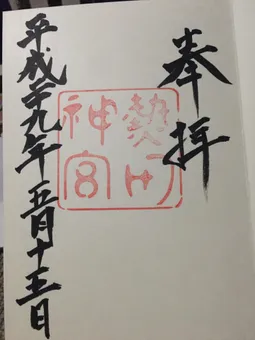 奉拝
熱田神宮
平成廿九年五月十五日